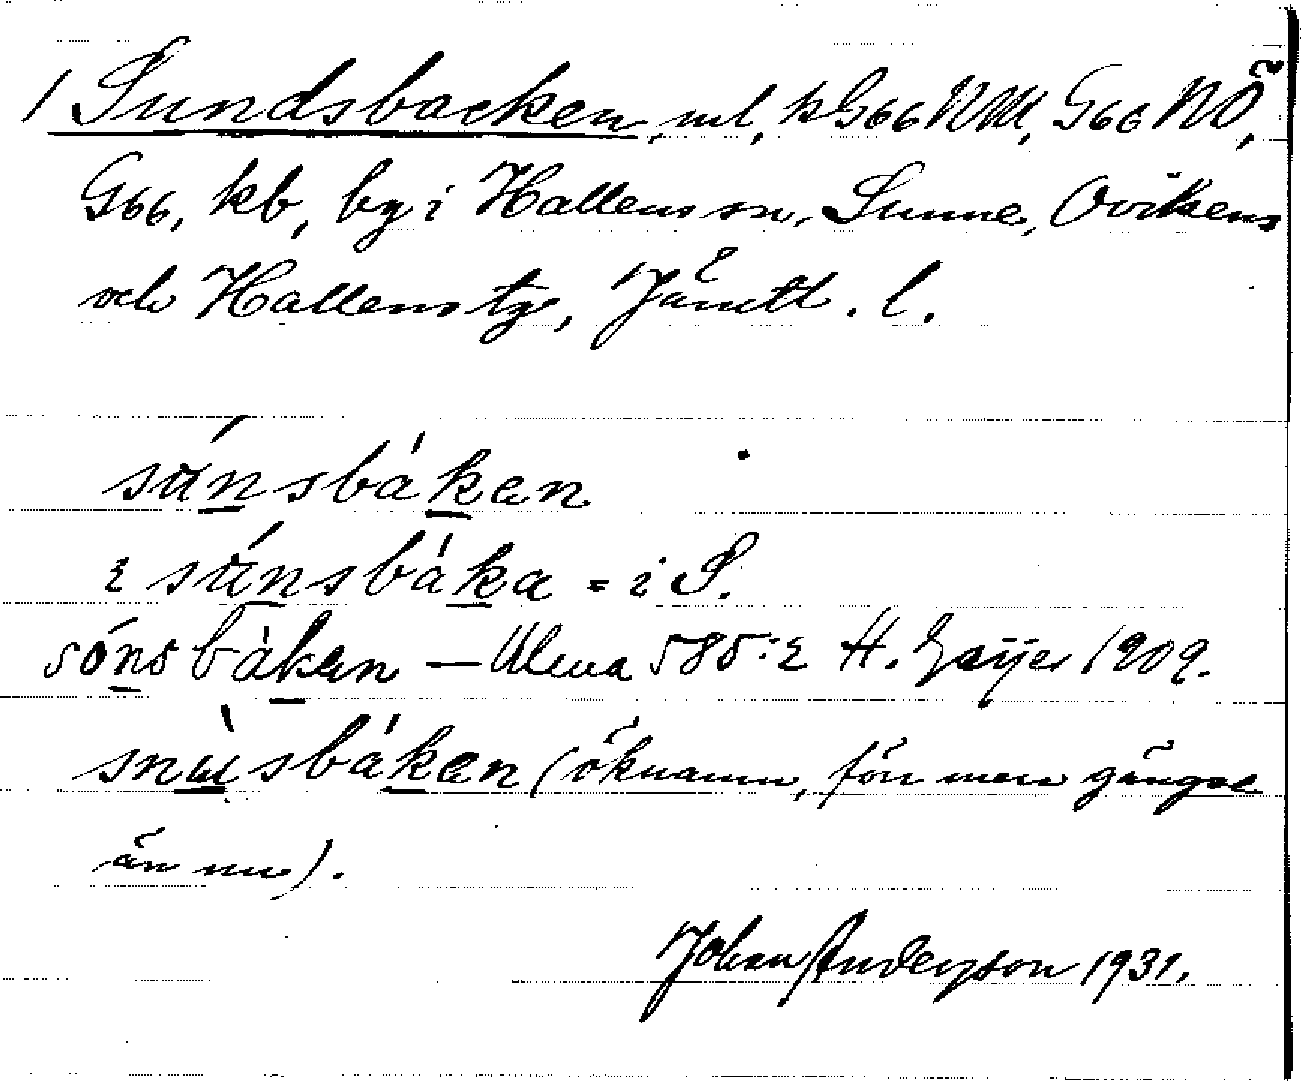 1 Sundsbacken, ml, k G66 NM, G66 NÖ,
G66, kb, by i Hallens sn, Sunne, Ovikens
och Hallens tg, Jämtl. l.
súnsbákan
i súnsbáka = i S.
sónsbàkan — Ulma 585:2 H. Geijer 1909.
snusbákan (öknamn, förr mera gängse
än nu).
Johan Anderson 1931.